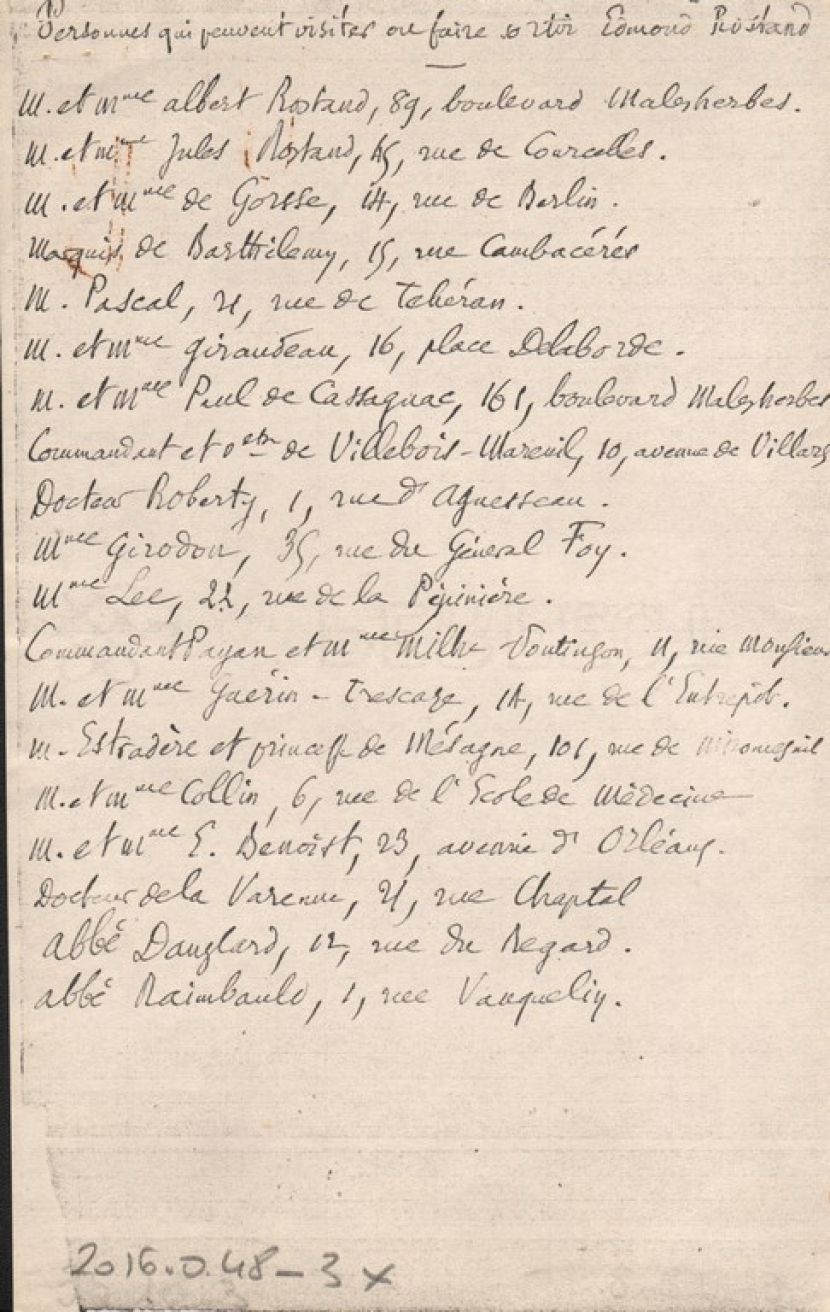 Personnes qui peuvent visiter ou faire sortir Edmond Rostand
M. et Mme albert Rostand, 89, boulevard Malesherbes.
M. et Mme Jules Rostand, 45, rue de Courcelles.
M. et Mme de Gorsse, 14, rue de Berlin.
Marquis de Barthélemy, 15, rue Cambacérés
M. Pascal, 21, rue de Téhéran.
M. et Mme giraudeau, 16, place Delaborde.
M. et Mme Paul de Cassagnac, 161, boulevard Malesherbes
Commandant et de Villebois-Mareuil, 10, avenue de Villars
Docteur Roberty, 1, rue d'Aguesseau.
Mme Girodon, 35, rue du Général Foy.
Mme Lee, 22, rue de la Pépinière.
Commandant Payan et Mme Milhe 11, rue Monsieur
M. et Mme Guérin - Trescaze, 14, rue de l'Entrepôt.
M. Estradère et princesse de Mésagne, 101, rue de Miromesnil
M. et Mme Collin, 6, rue de l'Ecole de Médecine
M. et Mme E. Benoist, 23, avenue d'Orléans.
Docteur de la Varenne, 21, rue Chaptal
abbé Danglard, 12, rue du Regard.
abbé Raimbault, 1, rue Vauquelin.
2016.0.48-3 x